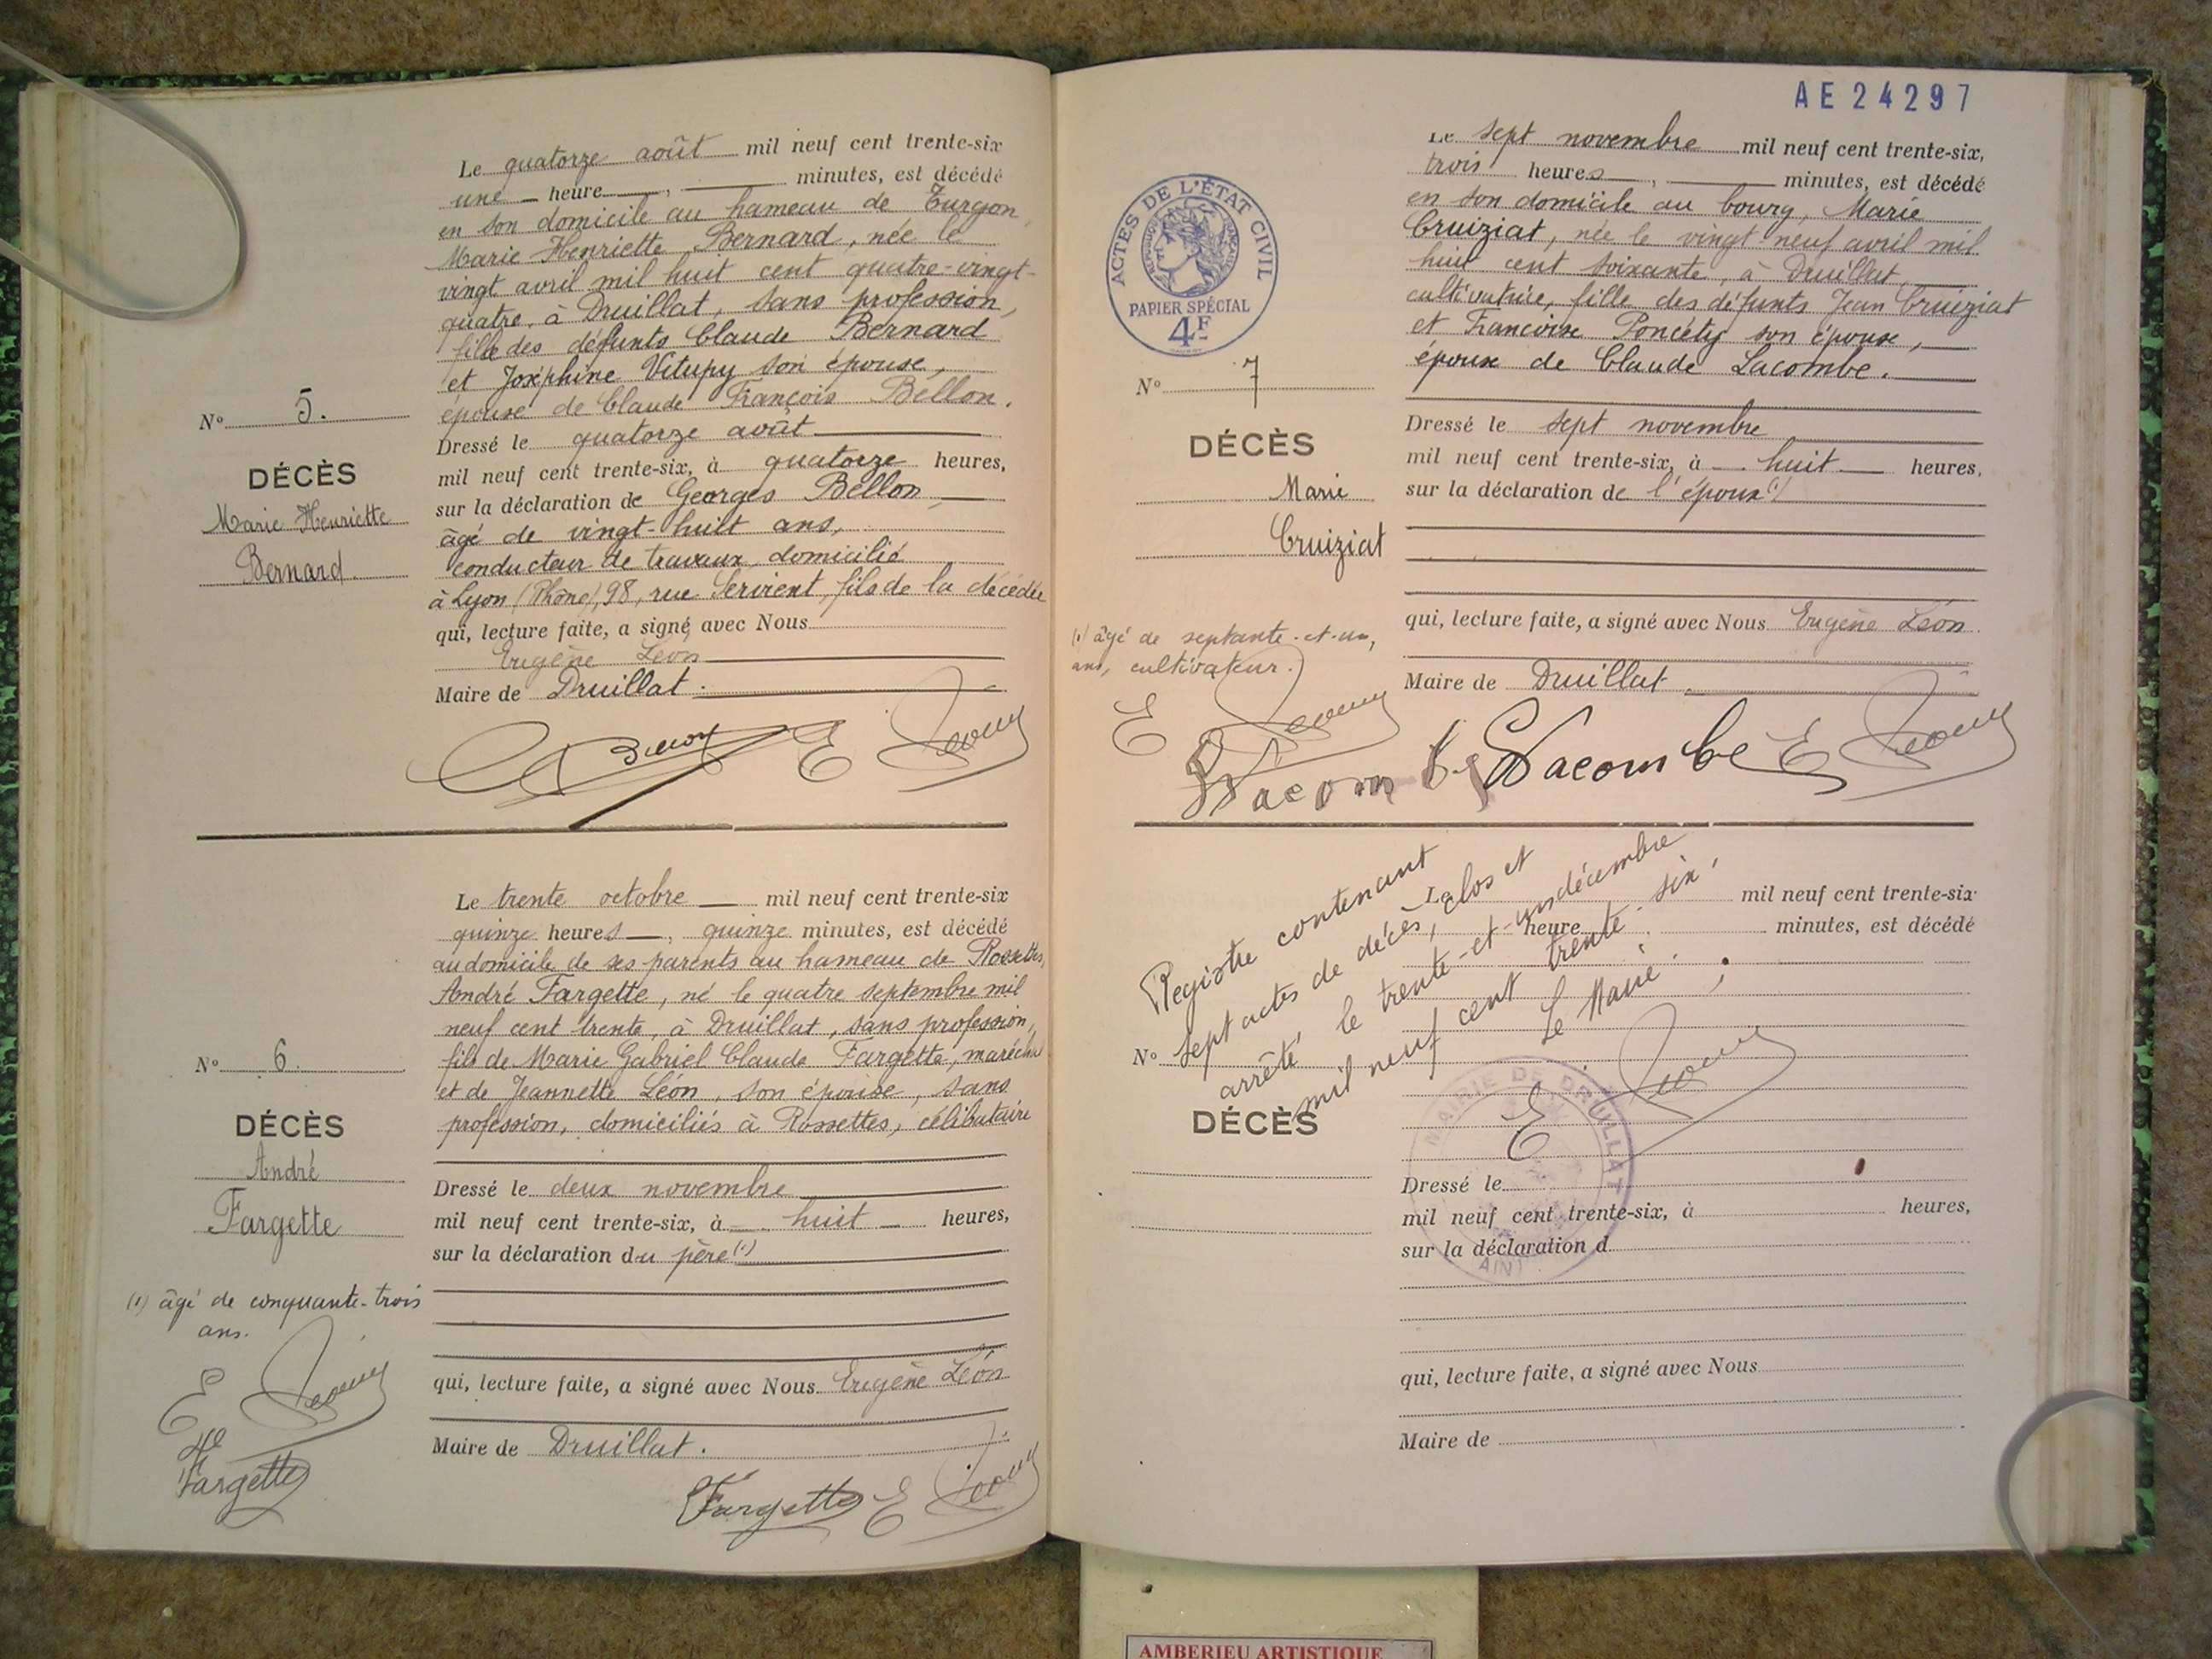 Le quatorze août mil neuf cent trente-six
une heure , minutes, est décédé
en son domicile au hameau de Turgon
Marie Henriette Bernard, née le
vingt avril mil huit cent quatre-vingt-
quatre, à Druillat, sans profession,
fille des défunts Claude Bernard
et Joséphine Vitupy son épouse,
épouse de Claude François Bellon.
Dressé le quatorze août
mil neuf cent trente-six, à quatorze heures,
sur la déclaration de Georges Bellon
âgé de vingt-huit ans,
conducteur de travaux, domicilié
à Lyon (Rhône), 98, rue Servient, fils de la décédée
qui, lecture faite, a signé avec Nous
Eugène Léon
Maire de Druillat.
Nº 5.
DÉCÈS
Marie Henriette
Bernard
Le trente octobre mil neuf cent trente-six
quinze heures , quinze minutes, est décédé
au domicile de ses parents au hameau de Rossettes,
André Fargette, né le quatre septembre mil
neuf cent trente, à Druillat, sans profession,
fils de Marie Gabriel Claude Fargette, maréchal
et de Jeannette Léon, son épouse, sans
profession, domiciliés à Rossettes, célibataire
Nº 6.
DÉCÈS
André
Fargette
Dressé le deux novembre
mil neuf cent trente-six, à huit heures,
sur la déclaration du père (1)
(1) âgé de cinquante-trois
ans.
qui, lecture faite, a signé avec Nous Eugène Léon
Maire de Druillat.
E Léon
Fargette
Fargette E Léon
AE 24297
Le sept novembre mil neuf cent trente-six,
trois heures , minutes, est décédé
en son domicile au bourg, Marie
Cruiziat, née le vingt-neuf avril mil
huit cent soixante, à Druillat,
cultivatrice, fille des défunts Jean Cruiziat
et Françoise Poncety son épouse,
épouse de Claude Lacombe.
ACTES DE L'ÉTAT CIVIL
RÉPUBLIQUE FRANÇAISE
PAPIER SPÉCIAL
4F
Nº 7
DÉCÈS
Marie
Cruiziat
Dressé le sept novembre
mil neuf cent trente-six, à huit heures,
sur la déclaration de l'époux (1)
(1) âgé de septante-et-un,
ans, cultivateur.
qui, lecture faite, a signé avec Nous Eugène Léon
Maire de Druillat
E Léon
Lacombe Lacombe E Léon
Registre contenant
sept actes de décès, clos et
arrêté le trente-et-un décembre
mil neuf cent trente-six.
Le Maire.
E Léon
MAIRIE DE DRUILLAT
AIN
Le mil neuf cent trente-six
heure minutes, est décédé
Nº
DÉCÈS
Dressé le
mil neuf cent trente-six, à heures,
sur la déclaration d
qui, lecture faite, a signé avec Nous
Maire de
AMBERIEU ARTISTIQUE